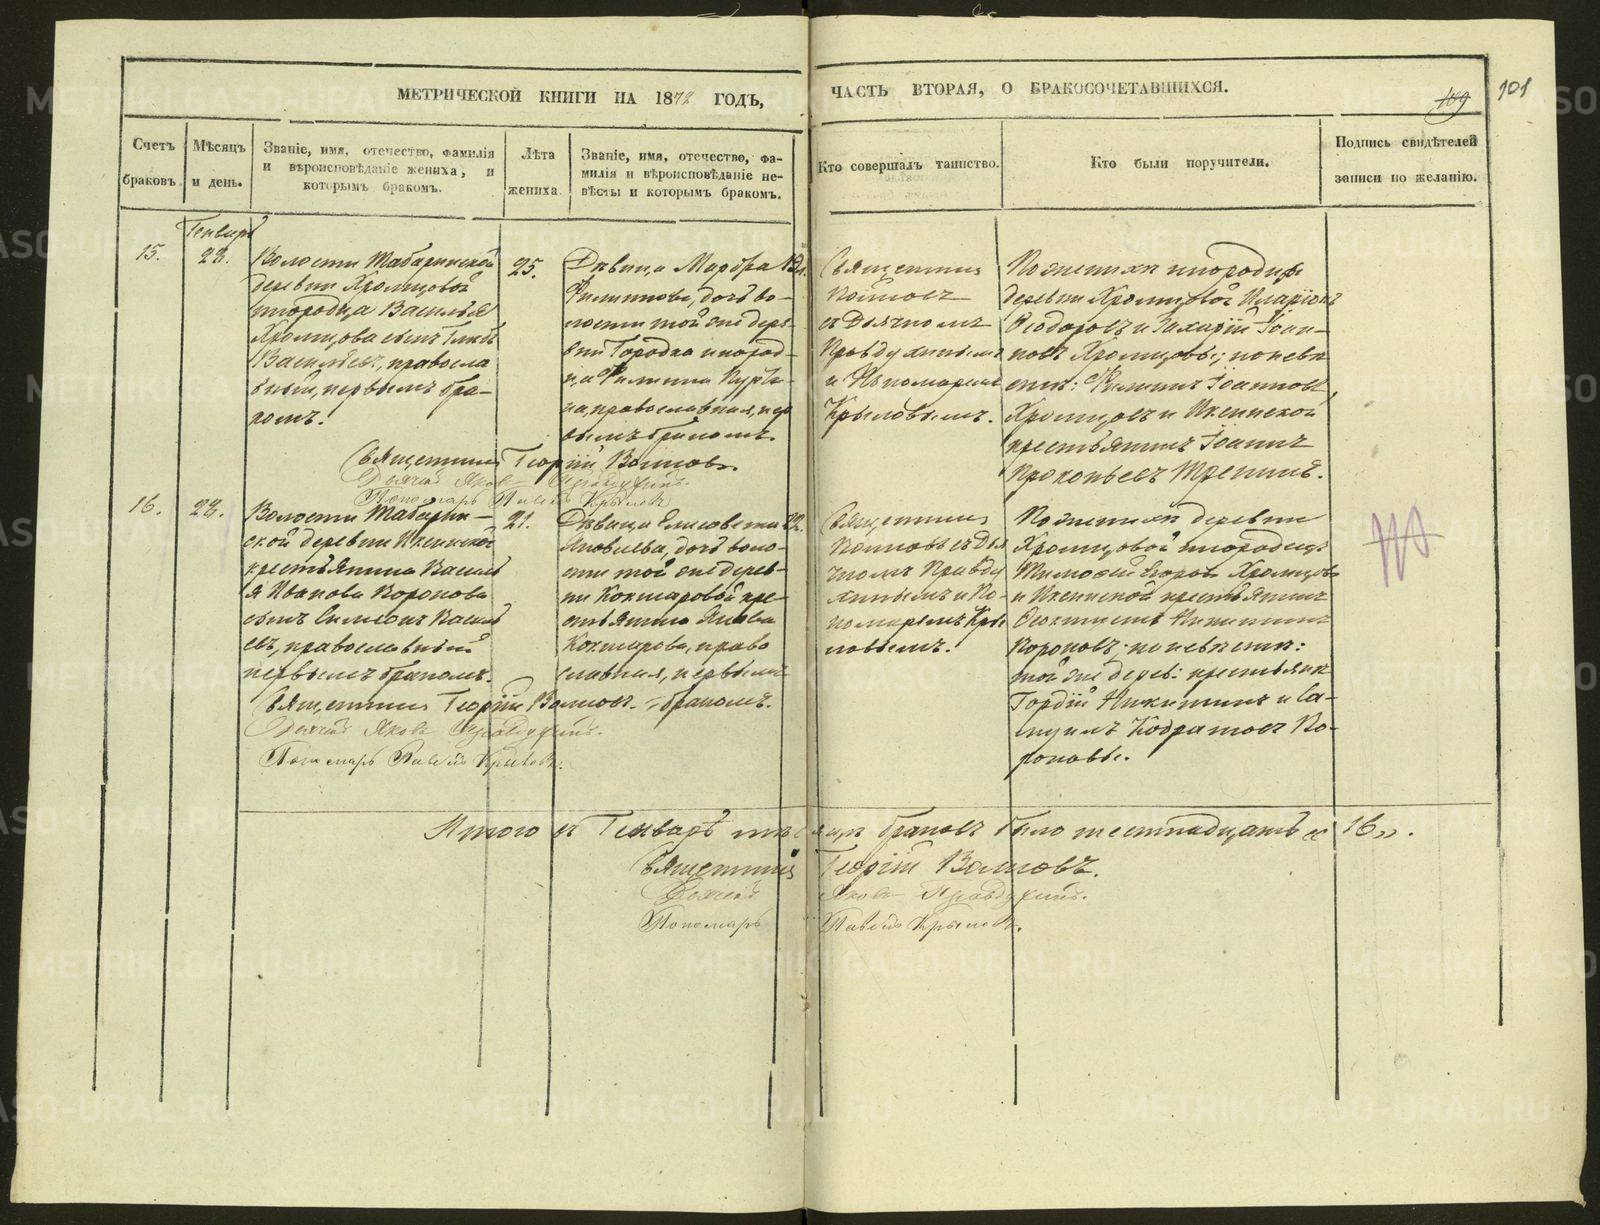 МЕТРИЧЕСКОЙ КНИГИ НА 1872 ГОДЪ,
ЧАСТЬ ВТОРАЯ, О БРАКОСОЧЕТАВШИХСЯ.
109
101
Счетъ
браковъ.
Мѣсяцъ
и день.
Званіе, имя, отечество, фамилія
и вѣроисповѣданіе жениха, и
которымъ бракомъ.
Лѣта
жениха.
Званіе, имя, отечество, фа-
милія и вѣроисповѣданіе не-
вѣсты и которымъ бракомъ.
Кто совершалъ таинство.
Кто были поручители.
Подпись свидѣтелей
записи по желанію.
Генварь
15.
23.
Волости Табаринской
деревни Хромцовой
инородца Василья
Хромцова сынъ Глѣбъ
Васильевъ, правосла
вный, первымъ бра-
комъ.
25.
Дѣвица Марфа
Филипова, дочь во-
лости той же дерев-
ни Городка инород-
ца Филипа
на, православная, пер
вымъ бракомъ.
Священникъ
Воиновъ
съ Дьячкомъ
Правдухинымъ
и Пономаремъ
Крыловымъ.
По женихѣ инородцы
деревни Хромцовой Иларіонъ
Ѳеодоровъ и Захарій Іоан-
новъ Хромцовы; по невѣ
стѣ: Филипъ Іоанновъ
Хромцовъ и Иксинской
крестьянинъ Іоаннъ
Прокопьевъ
Священникъ Георгій Воиновъ.
Дьячекъ Яковъ Правдухинъ.
Пономарь Павелъ Крыловъ
16.
23.
Волости Табарин-
ской деревни Иксинской
крестьянина Васил
я Иванова Воронова
сынъ Симеонъ Васил
евъ, православный
первымъ бракомъ.
21.
Дѣвица Елисовета
Яковлева, дочь воло-
сти той же дерев-
ни Кокшаровой кре-
стьянина Якова
Кокшарова, право
славная, первымъ
бракомъ.
22.
Священникъ
Воиновъ съ Дья
чкомъ Правду
хинымъ и По-
номаремъ Кры
ловымъ.
По женихѣ деревни
Хромцовой инородецъ
Тимоѳей Егоровъ Хромцовъ
и Иксинской крестьянинъ
Ѳеоктистъ Никитинъ
Вороновъ; по невѣстѣ:
той же дерев: крестьяне
Гордій Никитинъ и Са-
муилъ Кодратовъ Во-
роновы.
Священникъ Георгій Воиновъ.
Дьячекъ Яковъ Правдухинъ.
Пономарь Павелъ Крыловъ.
Итого въ Генварѣ мѣсяцѣ браковъ было шестнадцать „16".
Священникъ Георгій Воиновъ.
Дьячекъ Яковъ Правдухинъ.
Пономарь Павелъ Крыловъ.
METRIKI.GASO-URAL.RU